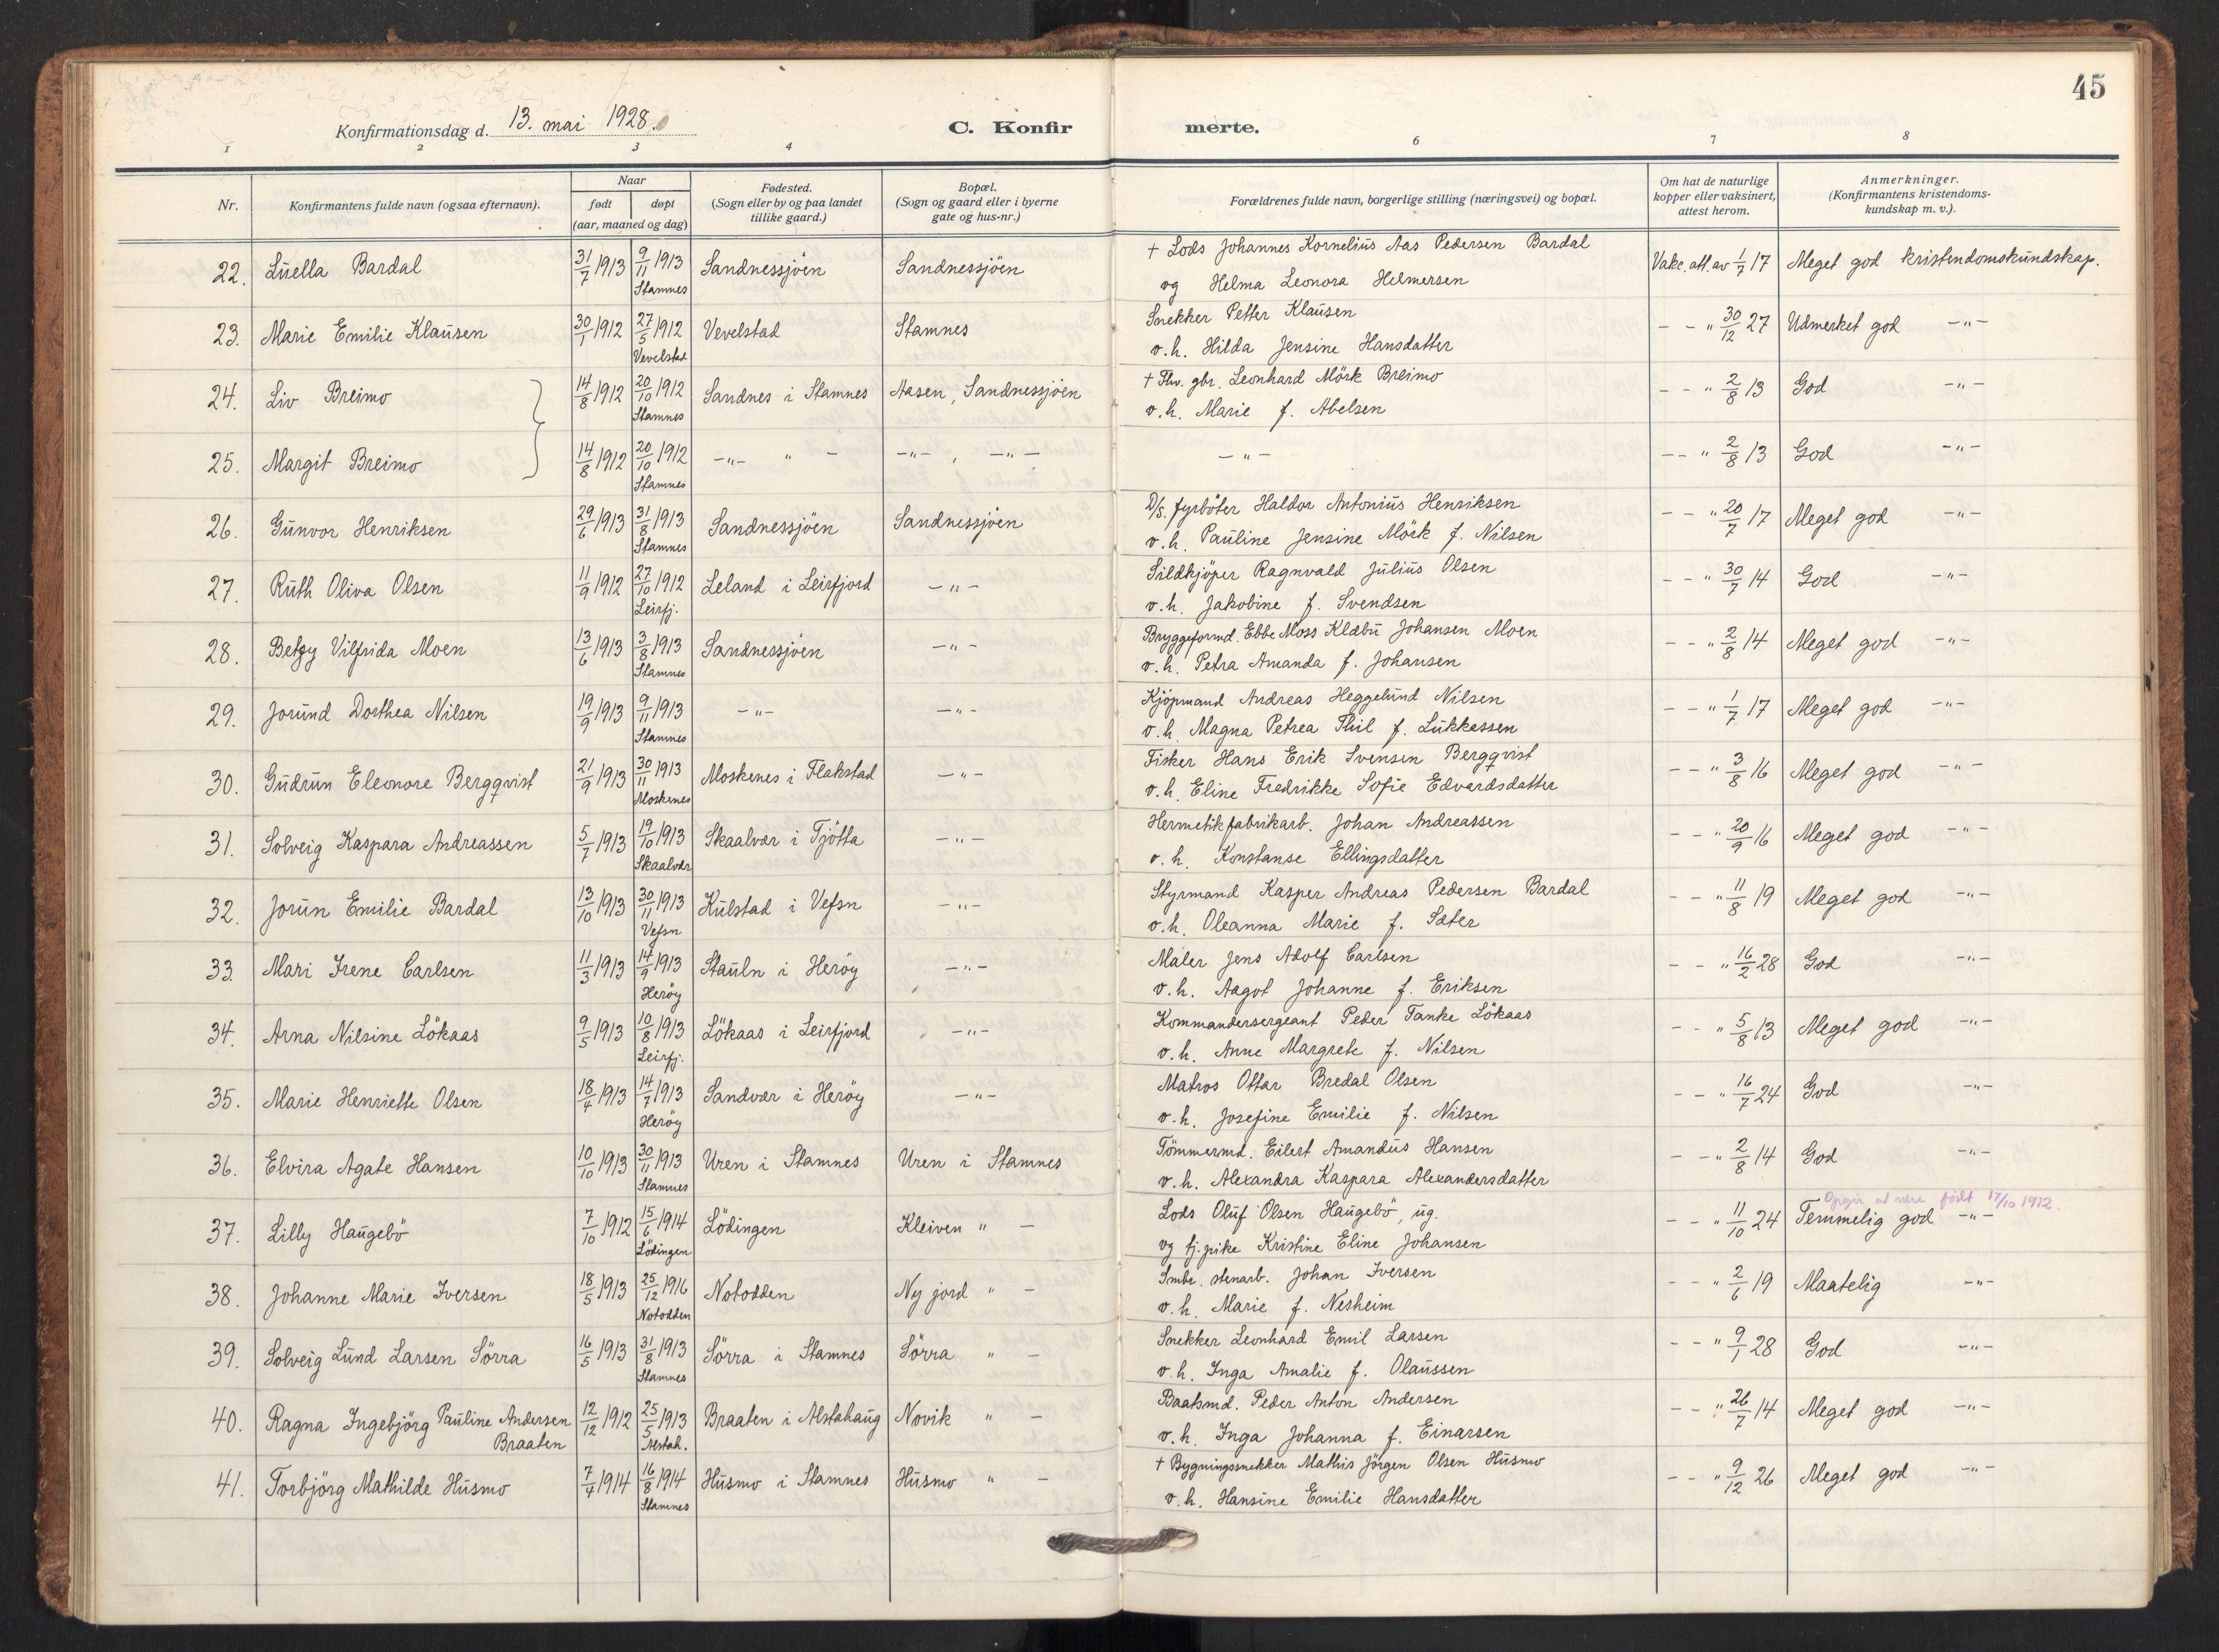 45
Konfirmationsdag d. 13. mai 1928. C. Konfirmerte.
1 2 3 4 6 7 8
Nr. Konfirmantens fulde navn (ogsaa efternavn). Naar født døpt (aar, maaned og dag) Fødested. (Sogn eller by og paa landet tillike gaard.) Bopæl. (Sogn og gaard eller i byerne gate og hus-nr.) Forældrenes fulde navn, borgerlige stilling (næringsvei) og bopæl. Om hat de naturlige kopper eller vaksinert, attest herom. Anmerkninger. (Konfirmantens kristendomskundskap m. v.).
22. Luella Bardal 31/7 1913 9/11 1913 Stamnes Sandnessjöen Sandnessjöen † Lods Johannes Kornelius Aas Pedersen Bardal Vakc. att. av 1/7 17 Meget god kristendomskundskap.
og Helma Leonora Helmersen
23. Marie Emilie Klausen 30/1 1912 27/5 1912 Vevelstad Vevelstad Stamnes Snekker Petter Klausen - - " 30/12 27 Udmerket god -"-
o.h. Hilda Jensine Hansdatter
24. Liv Breimo 14/8 1912 20/10 1912 Stamnes Sandnes i Stamnes Aasen, Sandnessjöen † Thv. gbr. Leonhard Mörk Breimo - - " 2/8 13 God -"-
o.h. Marie f. Abelsen
25. Margit Breimo 14/8 1912 20/10 1912 Stamnes -"- " - -"- , -"- -"- - - " 2/8 13 God -"-
26. Gunvor Henriksen 29/6 1913 31/8 1913 Stamnes Sandnessjöen Sandnessjöen D/S. fyrböter Haldor Antonius Henriksen - - " 20/7 17 Meget god -"-
o.h. Pauline Jensine Mörk f. Nilsen
27. Ruth Oliva Olsen 11/9 1912 27/10 1912 Leirfj. Leland i Leirfjord -"- Sildkjöper Ragnvald Julius Olsen - - " 30/7 14 God -"-
o.h. Jakobine f. Svendsen
28. Betzy Vilfrida Moen 13/6 1913 3/8 1913 Stamnes Sandnessjöen -"- Bryggeformd. Ebbe Moss Klæbu Johansen Moen - - " 2/8 14 Meget god -"-
o.h. Petra Amanda f. Johansen
29. Jorund Dorthea Nilsen 19/9 1913 9/11 1913 Stamnes -"- -"- Kjöpmand Andreas Heggelund Nilsen - - " 1/7 17 Meget god -"-
o.h. Magna Petrea Thil f. Lukkassen
30. Gudrun Eleonore Bergqvist 21/9 1913 30/11 1913 Moskenes Moskenes i Flakstad -"- Fisker Hans Erik Svensen Bergqvist - - " 3/8 16 Meget god -"-
o.h. Eline Fredrikke Sofie Edvardsdatter
31. Solveig Kaspara Andreassen 5/7 1913 19/10 1913 Skaalvær Skaalvær i Tjötta -"- Hermetikfabrikarb. Johan Andreassen - - " 20/9 16 Meget god -"-
o.h. Konstanse Ellingsdatter
32. Jorun Emilie Bardal 13/10 1913 30/11 1913 Vefsn Kulstad i Vefsn -"- Styrmand Kasper Andreas Pedersen Bardal - - " 11/8 19 Meget god -"-
o.h. Oleanna Marie f. Sæter
33. Mari Irene Carlsen 11/3 1913 14/9 1913 Heröy Stauln i Heröy -"- Maler Jens Adolf Carlsen - - " 16/2 28 God -"-
o.h. Aagot Johanne f. Eriksen
34. Arna Nilsine Lökaas 9/5 1913 10/8 1913 Leirfj. Lökaas i Leirfjord -"- Kommandersergeant Peder Tanke Lökaas - - " 5/8 13 Meget god -"-
o.h. Anne Margrete f. Nilsen
35. Marie Henriette Olsen 18/4 1913 14/7 1913 Heröy Sandvær i Heröy -"- Matros Ottar Bredal Olsen - - " 16/7 24 God -"-
o.h. Josefine Emilie f. Nilsen
36. Elvira Agate Hansen 10/10 1913 30/11 1913 Stamnes Uren i Stamnes Uren i Stamnes Tömmermd. Eilert Amandus Hansen - - " 2/8 14 God -"-
o.h. Alexandra Kaspara Alexandersdatter
Opgir at være født 17/10 1912.
37. Lilly Haugebö 7/10 1912 15/6 1914 Lödingen Lödingen Kleiven " - Lods Oluf Olsen Haugebö, ug. - - " 11/10 24 Temmelig god -"-
og tj.pike Kristine Eline Johansen
38. Johanne Marie Iversen 18/5 1913 25/12 1916 Notodden Notodden Ny jord " - Smbr. stenarb. Johan Iversen - - " 2/6 19 Maatelig -"-
o.h. Marie f. Nesheim
39. Solveig Lund Larsen Sörra 16/5 1913 31/8 1913 Stamnes Sörra i Stamnes Sörra " - Snekker Leonhard Emil Larsen - - " 9/1 28 God -"-
o.h. Inga Amalie f. Olaussen
40. Ragna Ingebjörg Pauline Andersen Braaten 12/12 1912 25/5 1913 Alstah. Braaten i Alstahaug Novik " - Baatsmd. Peder Anton Andersen - - " 26/7 14 Meget god -"-
o.h. Inga Johanna f. Einarsen
41. Torbjörg Mathilde Husmo 7/4 1914 16/8 1914 Stamnes Husmo i Stamnes Husmo " - † Bygningssnekker Mathis Jörgen Olsen Husmo - - " 9/12 26 Meget god -"-
o.h. Hansine Emilie Hansdatter